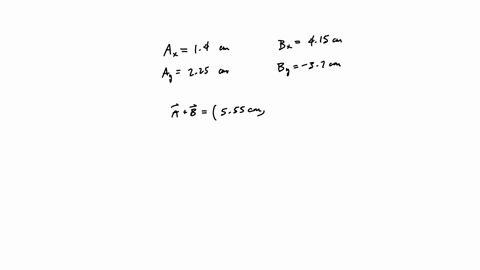 Aₓ = 1.4 cm
Bₓ = 4.15 cm
A_y = 2.25 cm
B_y = -3.7 cm
A⃗ + B⃗ = ( 5.55 cm,